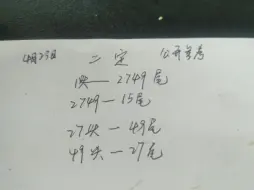 4月23日 二定 公开参考
1头——2749尾
2749—15尾
27头—49尾
49头—27尾